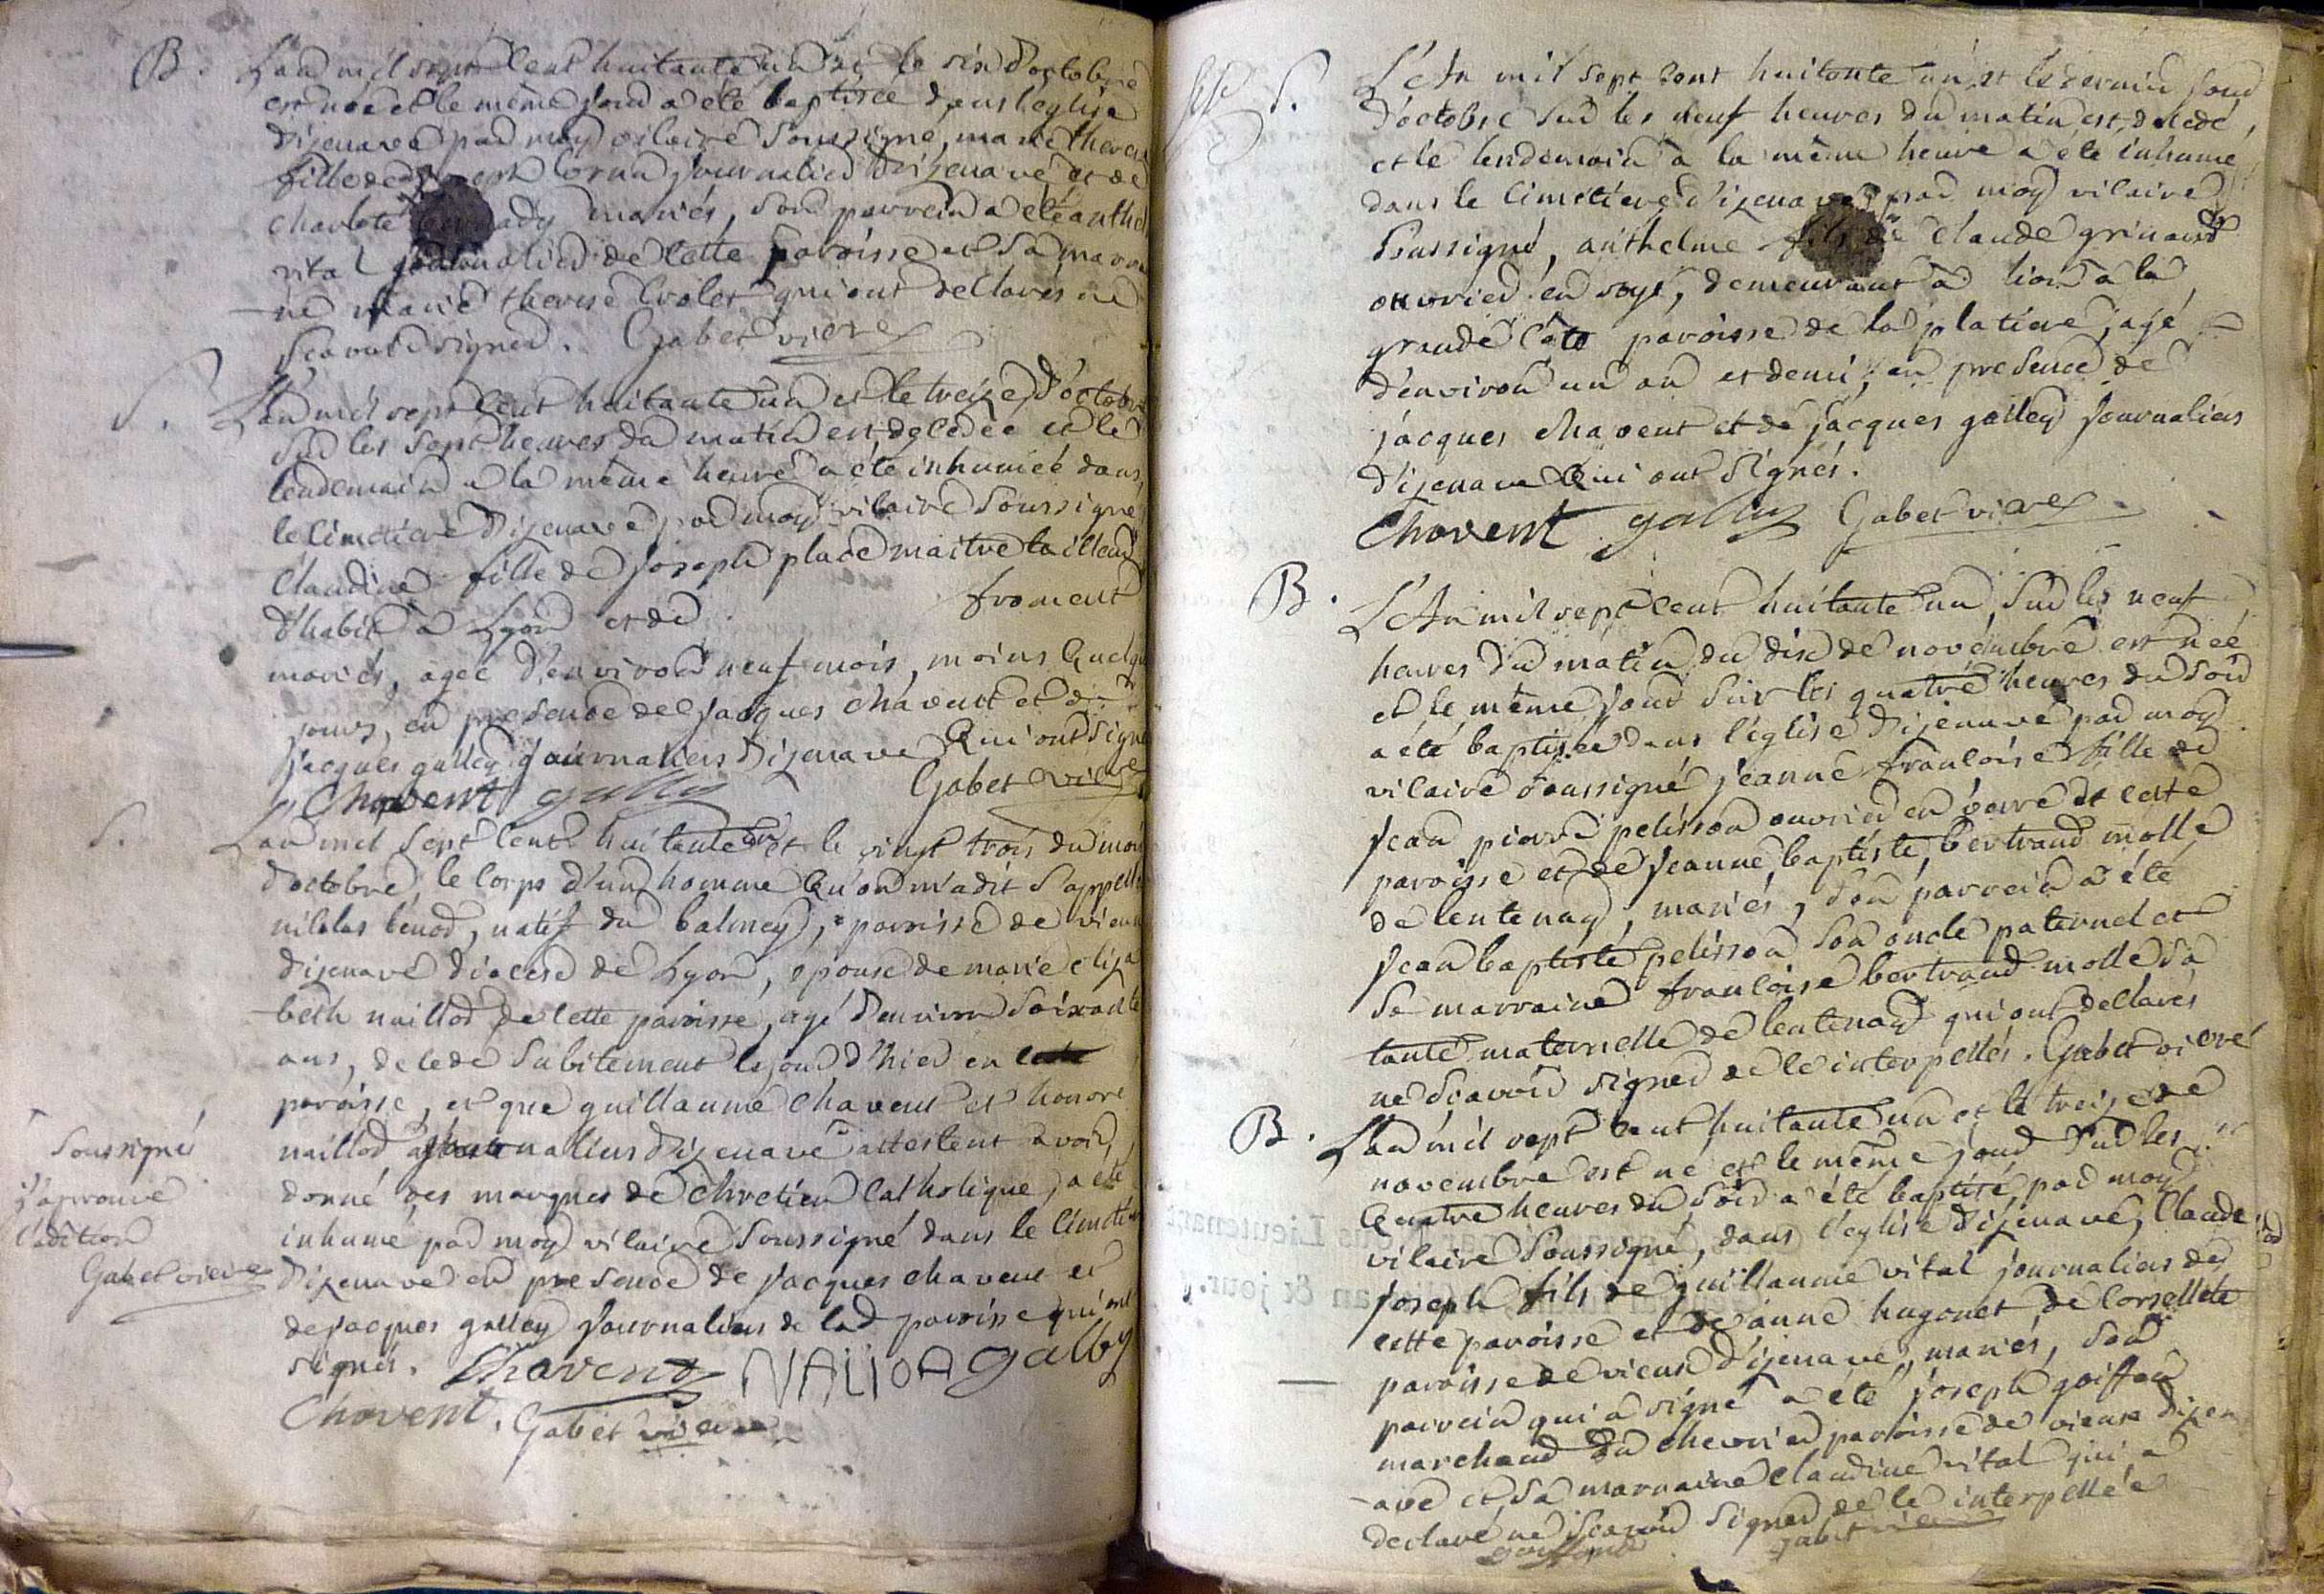 B. L'an mil sept cent huitante un et le six d'octobre
est née et le même jour a été baptisée dans l'eglise
d'izenave par moy vicaire soussigné, marie therese
fille de joseph journalier d'izenave et de
charlote mariés, son parrein a été anthel
vital journalier de cette paroisse et sa marrai
-ne marie therese qui ont declarés ne
sçavoir signer. Gabet vicre
S. L'an mil sept cent huitante un et le treize d'octobre
sur les sept heures du matin est decedée et le
lendemain a la même heure a été inhumée dans
le cimetiere d'izenave par moy vicaire soussigné
Claudine fille de joseph place maitre tailleur
d'habit a Lyon et de froment
mariés, agée d'environ neuf mois, moins quelqu
jours, en presence de jacques chavent et de
jacques galley journaliers d'izenave qui ont signé
Chavent gally Gabet vicre
S. L'an mil sept cent huitante un et le vingt trois du mois
d'octobre, le corps d'un homme qu'on m'a dit s'appell
nicolas benod, natif du balmey, paroisse de vieux
d'izenave diocese de Lyon, epoux de marie eliza
beth naillod de cette paroisse, agé d'environ soixante
ans, decedé subitement le jour d'hier en cette
paroisse, et que guillaume chavent et honoré
naillod journaliers d'izenave attestent avoir
donné des marques de chretien catholique, a été
inhumé par moy vicaire soussigné dans le cimetier
d'izenave en presence de jacques chavent et
de jacques galley journaliers de lad paroisse qui ont
signés. Chavent NAIIOA gally
Chavent. Gabet vicre
soussigné
j'aprouve
l'adition
Gabet vicre
S. L'An mil sept cent huitante un et le dernier jour
d'octobre sur les neuf heures du matin est decedé,
et le lendemain a la même heure a été inhumé
dans le cimetiere d'izenave par moy vicaire
soussigné, anthelme fils de claude grinand
ouvrier en soye, demeurant a lion a la
grande côte paroisse de la platiere, agé
d'environ un an et demi, en presence de
jacques chavent et de jacques galley journaliers
d'izenave qui ont signés.
Chavent gally Gabet vicre
B. L'An mil sept cent huitante un, sur les neuf
heures du matin du dix de novembre est née
et le même jour sur les quatre heures du soir
a été baptisée dans l'église d'izenave par moy
vicaire soussigné jeanne françoise fille de
jean pierre pelisson ouvrier en verre de cette
paroisse et de jeanne baptiste bertrand molle
de lentenay, mariés, son parrein a été
jean baptiste pelisson son oncle paternel et
sa marraine françoise bertrand molle sa
tante maternelle de lentenay qui ont declarés
ne sçavoir signer de ce interpellés. Gabet vicre
B. L'an mil sept cent huitante un et le treize de
novembre est né et le même jour sur les
quatre heures du soir a été baptisé, par moy
vicaire soussigné, dans l'eglise d'izenave, Claude
joseph fils de guillaume vital journalier de
cette paroisse et de anne hugonet de corcellete
paroisse de vieux d'izenave, mariés, son
parrein qui a signé a été joseph goiffon
marchand du chevrier paroisse de vieux d'izen
-ave et sa marraine claudine vital qui a
declaré ne sçavoir signer de ce interpellée
goiffon Gabet vicre